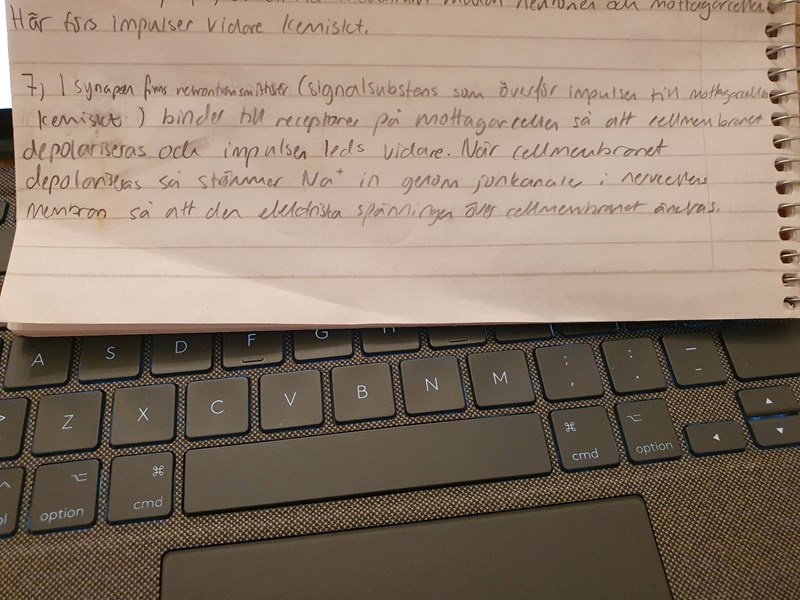 neuronen och mottagarcellen.
Här förs impulser vidare kemiskt.
7) I synapsen finns neurotransmittorer (signalsubstans som överför impulsen till mottagarcellen
kemiskt) binder till receptorer på mottagarcellen så att cellmembranet
depolariseras och impulsen leds vidare. När cellmembranet
depolariseras så strömmer Na⁺ in genom jonkanaler i nervcellens
membran så att den elektriska spänningen över cellmembranet ändras.
A S D F G
Z X C V B N M ; , : . _ -
⌥ option ⌘ cmd ⌘ cmd ⌥ option ◄ ▲ ▼